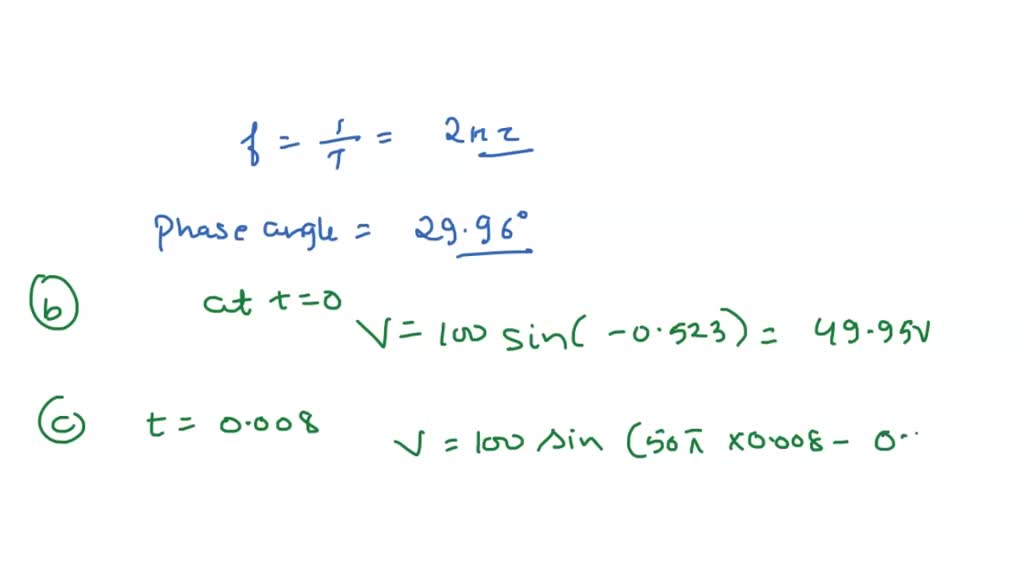 f = 1/T = 2HZ
Phase angle = 29.96°
b at t=0
V = 100 sin( -0.523) = 49.95V
c t = 0.008
V = 100 sin (50π x0.008 - 0..